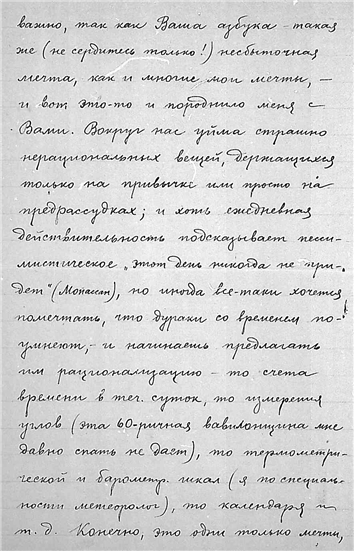 важно, так как Ваша азбука – такая
же (не сердитесь только!) несбыточная
мечта, как и многие мои мечты, –
и вот это-то и породнило меня с
Вами. Вокруг нас уйма страшно
нерациональных вещей, держащихся
только на привычке или просто на
предрассудках; и хоть ежедневная
действительность подсказывает песси-
мистическое „этот день никогда не при-
дет“ (Мопасан), но иногда все-таки хочется
помечтать, что дураки со временем по-
умнеют, – и начинаешь предлагать
им рационализацию – то счета
времени в теч. суток, то измерения
углов (эта 60-ричная вавилонщина мне
давно спать не дает), то термометри-
ческой и барометр. шкал (я по специаль-
ности метеоролог), то календаря и
т. д. Конечно, это одни только мечты,